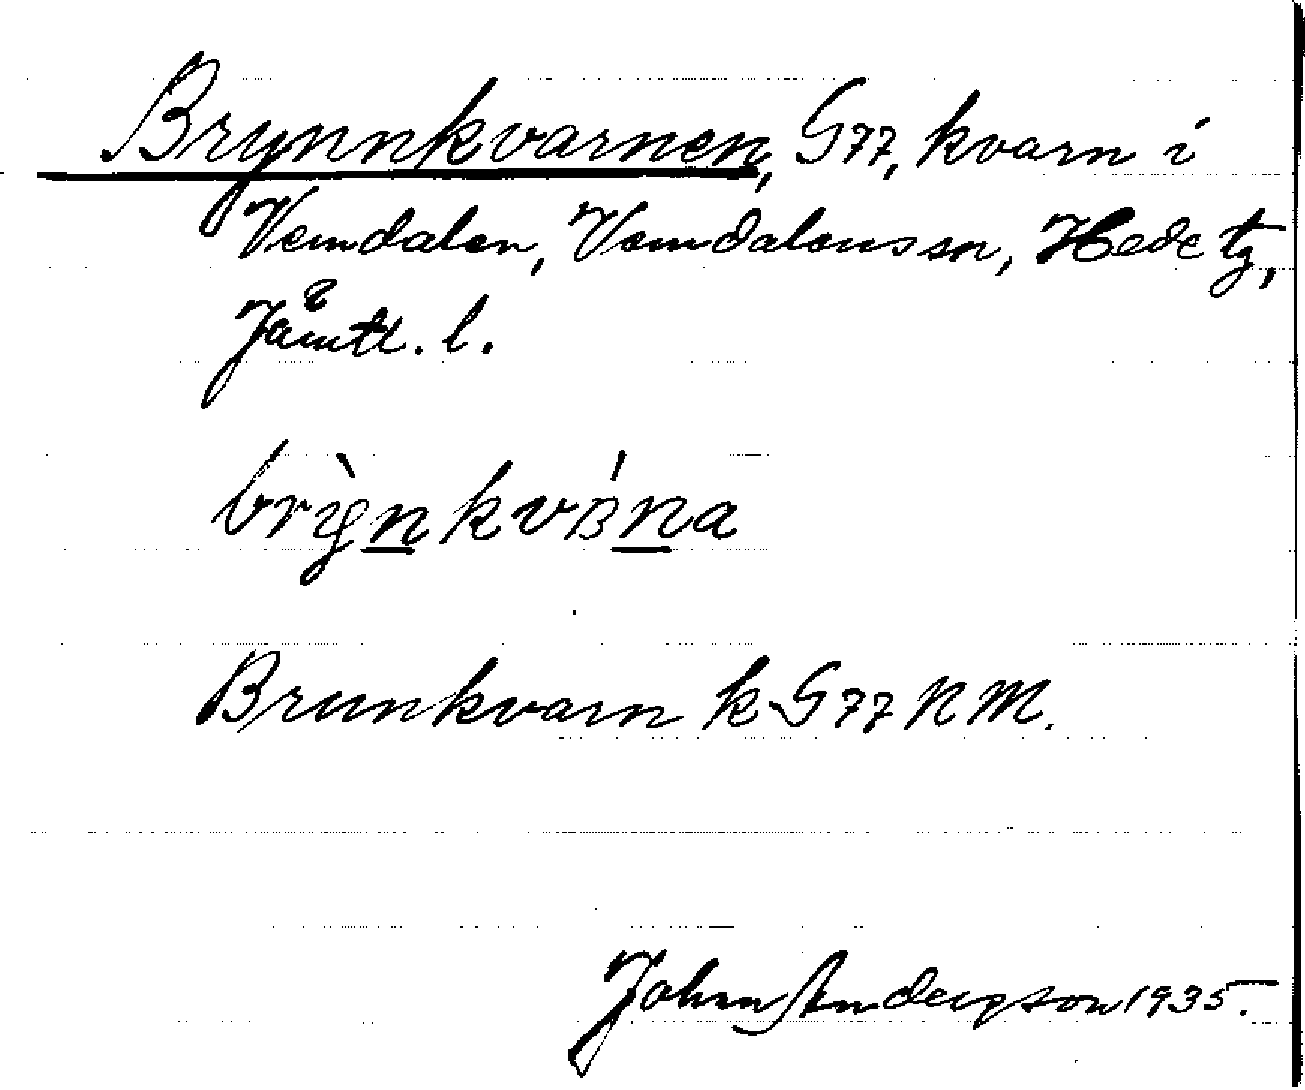 Brynnkvarnen, G77, kvarn i
Vemdalen, Vemdalens sn, Hede tg,
Jämtl. l.
brỳnkvána
Brunkvarn k G77 N M.
John Andersson 1935.